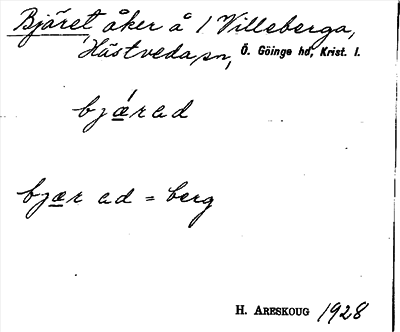 Bjäret åker å 1 Villeberga,
Hästveda sn, Ö. Göinge hd, Krist. l.
bjǽrad
bjær ad = berg
H. ARESKOUG 1928